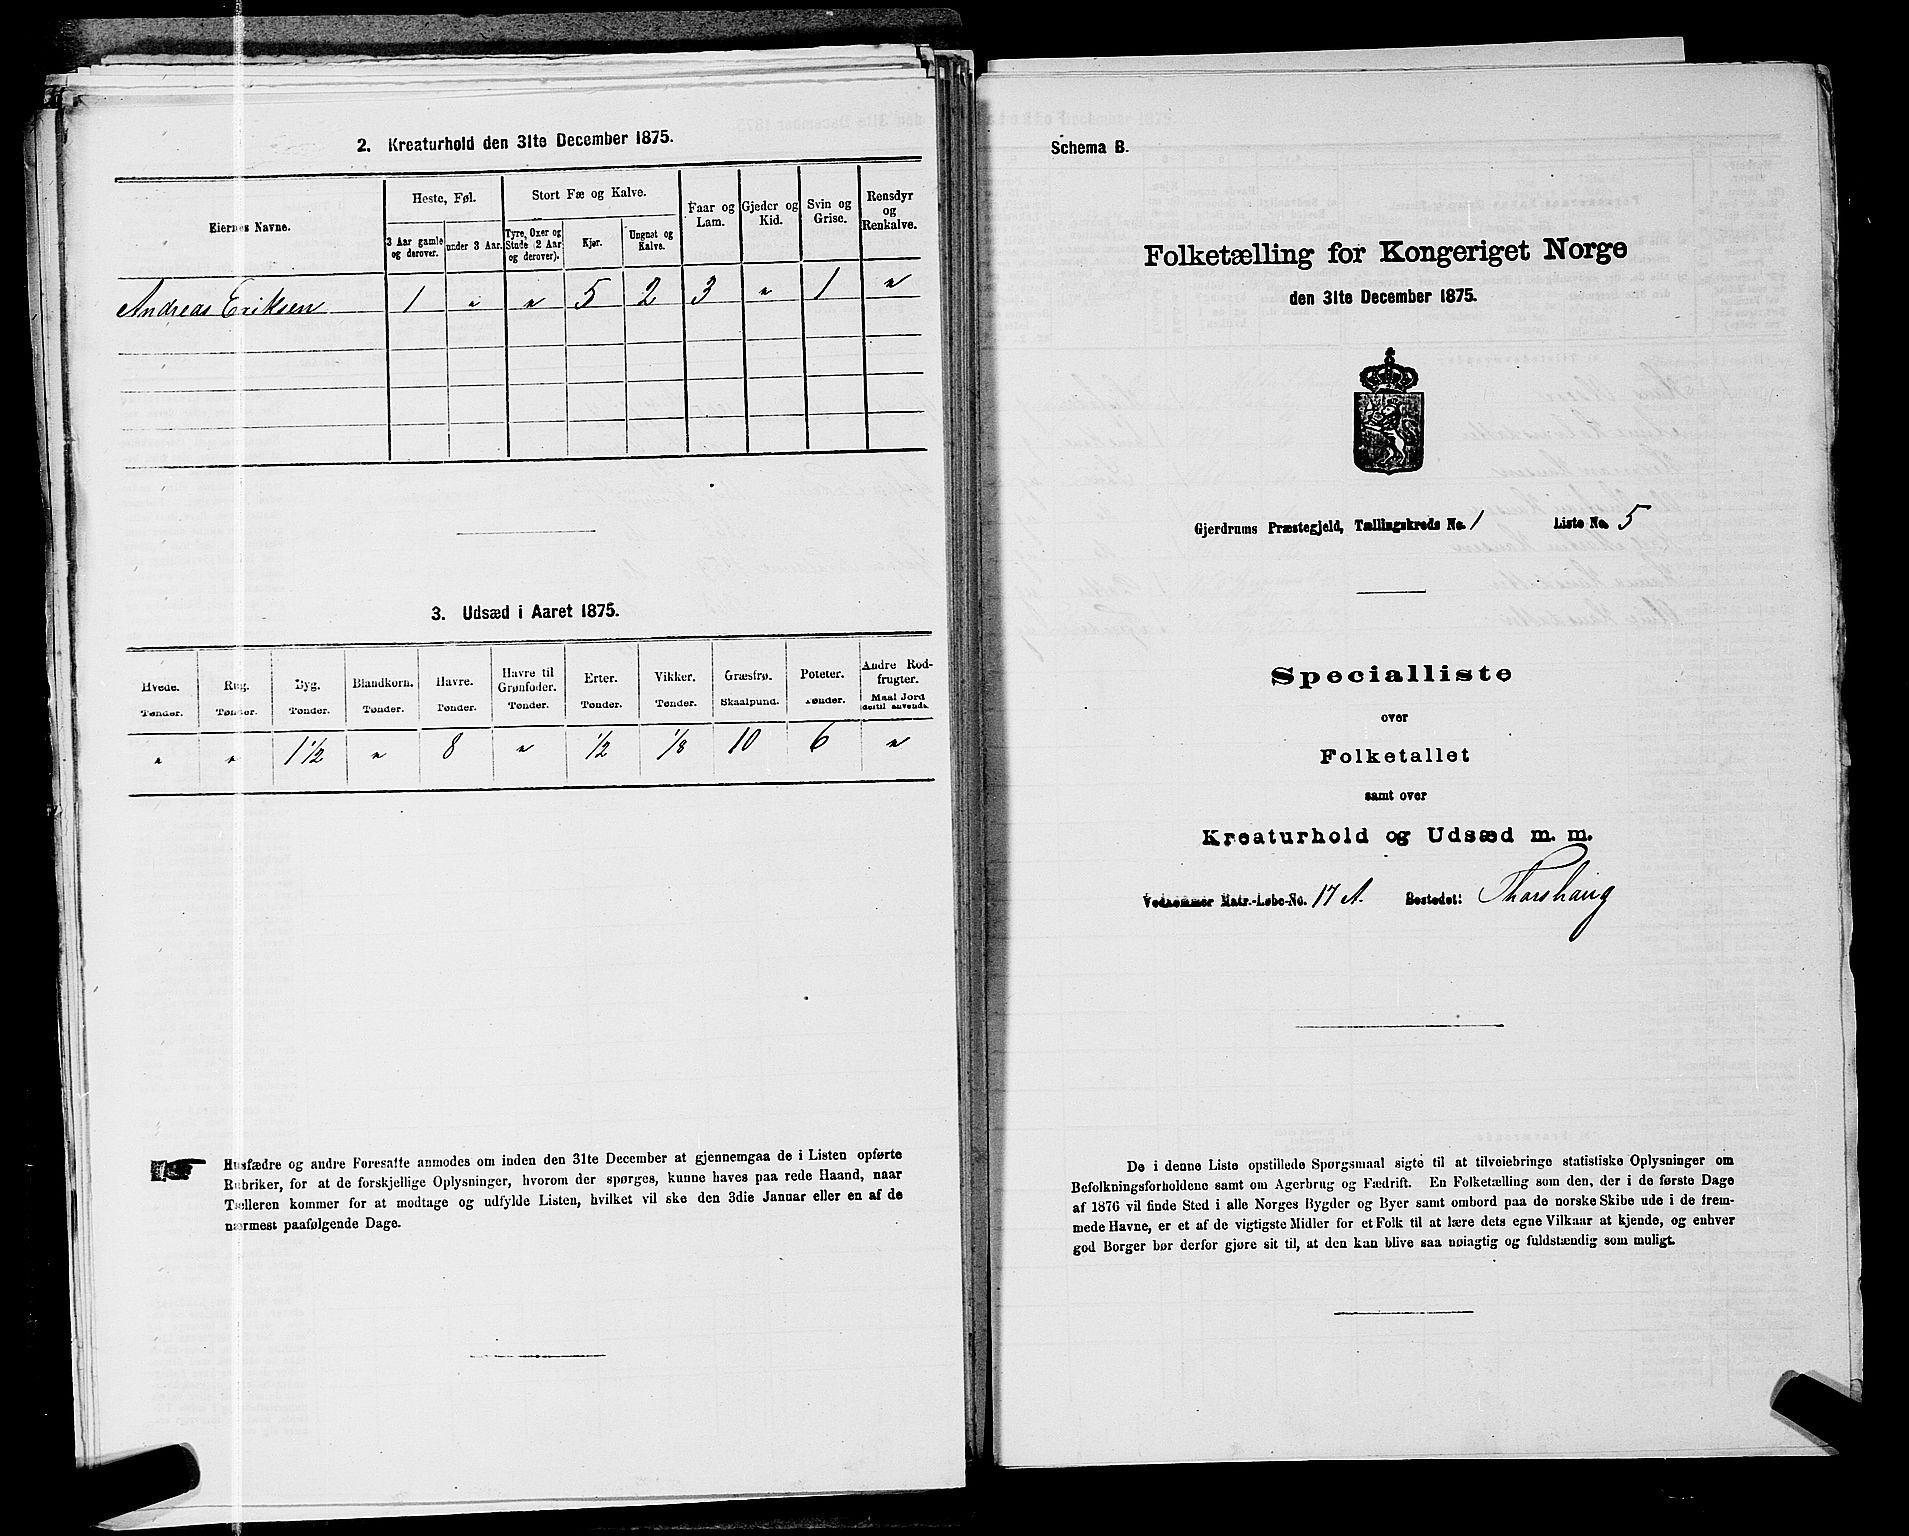 2. Kreaturhold den 31te December 1875.
Eiernes Navne.
Heste, Føl.
Stort Fæ og Kalve.
Faar og Lam.
Gjeder og Kid.
Svin og Grise.
Rensdyr og Renkalve.
3 Aar gamle og derover.
under 3 Aar.
Tyre, Oxer og Stude (2 Aar og derover).
Kjør.
Ungnøt og Kalve.
Andreas Eriksen 1 " " 5 2 3 " 1 "
3. Udsæd i Aaret 1875.
Hvede. Rug. Byg. Blandkorn. Havre. Havre til Grønfoder. Erter. Vikker. Græsfrø. Poteter. Andre Rodfrugter.
Tønder. Tønder. Tønder. Tønder. Tønder. Tønder. Tønder. Tønder. Skaalpund. Tønder. Maal Jord dertil anvendt.
" " 1 1/2 " 8 " 1/2 1/8 10 6 "
Husfædre og andre Foresatte anmodes om inden den 31te December at gjennemgaa de i Listen opførte
Rubriker, for at de forskjellige Oplysninger, hvorom der spørges, kunne haves paa rede Haand, naar
Tælleren kommer for at modtage og udfylde Listen, hvilket vil ske den 3die Januar eller en af de
nærmest paafølgende Dage.
Schema B.
Folketælling for Kongeriget Norge
den 31te December 1875.
Gjerdrums Præstegjeld, Tællingskreds No. 1 Liste No. 5
Specialliste
over
Folketallet
samt over
Kreaturhold og Udsæd m. m.
Vedkommer Matr.-Løbe-No. 17 A. Bostedet: Thorshaug
De i denne Liste opstillede Spørgsmaal sigte til at tilveiebringe statistiske Oplysninger om
Befolkningsforholdene samt om Agerbrug og Fædrift. En Folketælling som den, der i de første Dage
af 1876 vil finde Sted i alle Norges Bygder og Byer samt ombord paa de norske Skibe ude i de frem-
mede Havne, er et af de vigtigste Midler for et Folk til at lære dets egne Vilkaar at kjende, og enhver
god Borger bør derfor gjøre sit til, at den kan blive saa nøiagtig og fuldstændig som muligt.